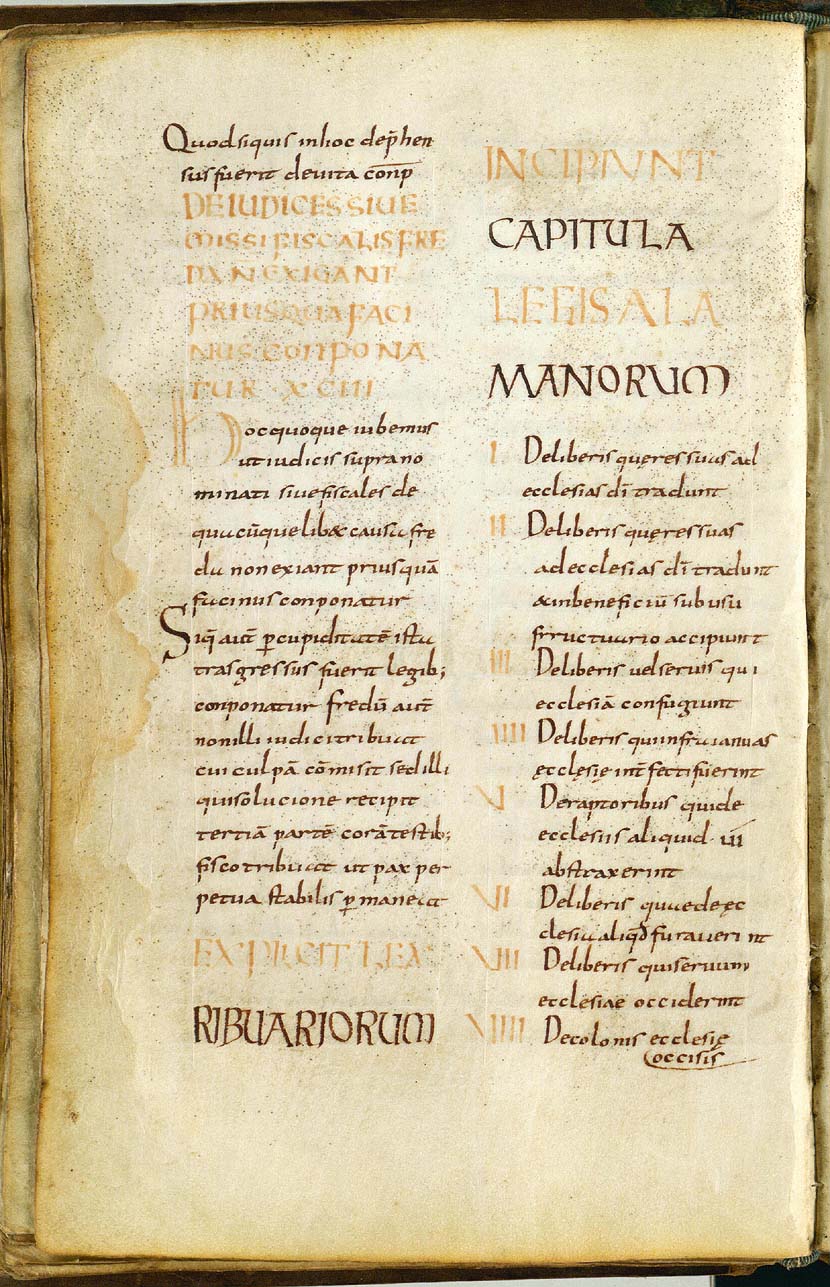 Quodsiquis inhoc dep̄hen
sus fuerit deuita con̄p
DE IUDICES SIUE
MISSI FISCALIS FRE
DA N̄ EXIGANT
PRIUSQUĀ FACI
NUS CONPONA
TUR XCIII
Hoc quoque iubemus
ut iudicis supra no
minati siue fiscales de
quacūque lib& causa fre
da non exiant priusquā
facinus conponatur
Siq̄ aut̄ p̱ cupiditatē ista
trasgressus fuerit legib;
conponatur fredū aut̄
nonilli iudici tribuat
cui culpā cōmisit sed illi
qui solucione recipit
tertiā partē corā testib;
fisco tribuat ut pax per
petua stabilis p̱maneat
EXPLICIT LEX
RIBUARIORUM
INCIPIUNT
CAPITULA
LEGIS ALA
MANORUM
I Deliberis quę res suas ad
ecclesias dī tradunt
II Deliberis quę res suas
ad ecclesias dī tradunt
& in beneficiū sub usu
frructuario accipiunt
III Deliberis uel seruis qui
ecclesiā confugiunt
IIII Deliberis qui infra ianuas
ęcclęsię int̄fecti fuerint
V De raptoribus qui de
ecclesiis aliquid uii
abstraxerint
VII Deliberis qui de ęc
clesia aliqđ furauerint
VIII Deliberis qui seruum
ecclesiae occiderint
VIIII De colonis ecclesię
occisis